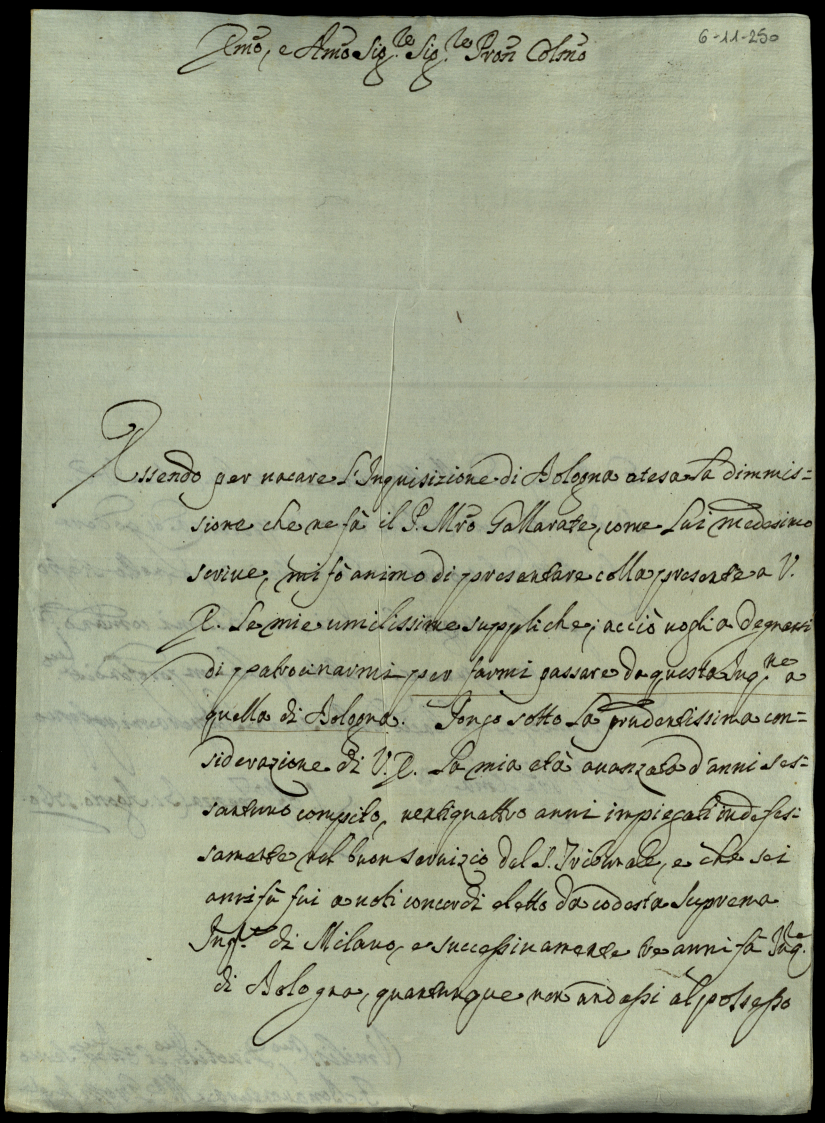 6-11-250
Emo, e Rmo Sig.re Sig.re Pron Colmo
Essendo per vacare l'Inquisizione di Bologna atesa la dimmis=
sione che ne fà il P. Mro Gallarate, come lui medesimo
scrive, mi fò animo di presentare colla presente a V.
E. le mie umilissime suppliche, acciò voglia degnarsi
di patrocinarmi per farmi passare da questa Inq.ne a
quella di Bologna. Pongo sotto la prudentissima con=
siderazione di V. E. la mia età avanzata d'anni ses=
santuno compito, ventiquattro anni impiegati indefes=
samente nel buon servizio del S. Tribunale, e che sei
anni fà fui a voti concordi eletto da codesta Suprema
Inq.re di Milano, e successivamente tre anni fà Inq.e
di Bologna, quantunque non andassi al possesso